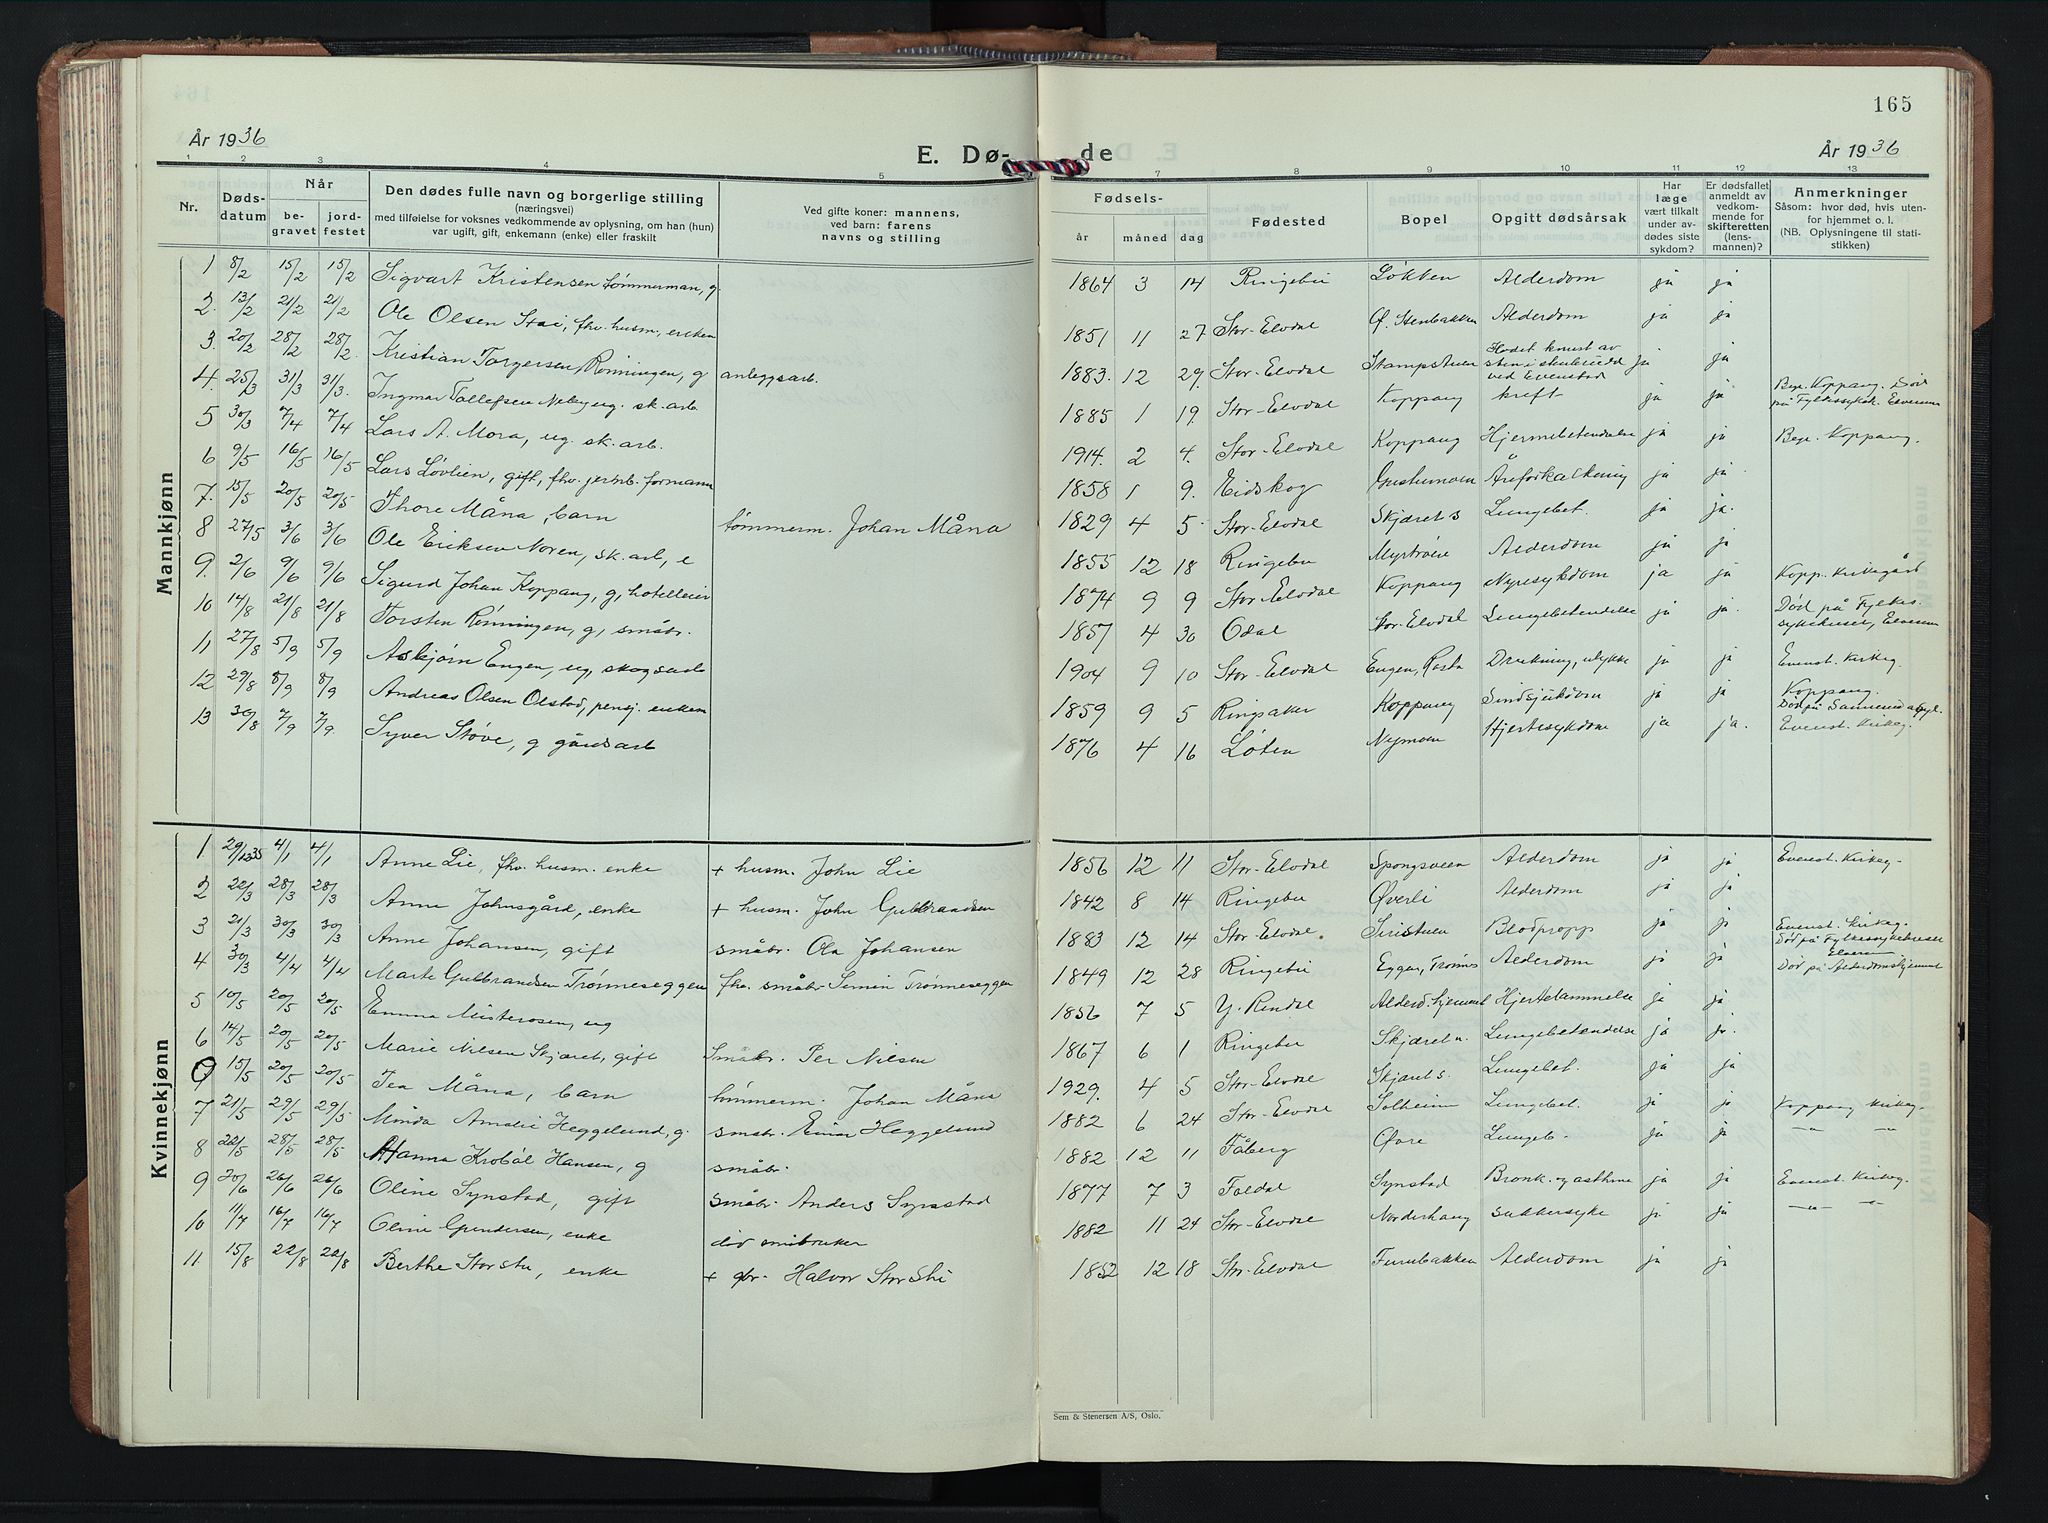 165
År 1936
E. Dø- de
År 1936
1 2 3 4 5 7 8 9 10 11 12 13
Nr.
Døds-
datum
Når
be-
gravet
jord-
festet
Den dødes fulle navn og borgerlige stilling
(næringsvei)
med tilføielse for voksnes vedkommende av oplysning, om han (hun)
var ugift, gift, enkemann (enke) eller fraskilt
Ved gifte koner: mannens,
ved barn: farens
navns og stilling
Fødsels-
år måned dag
Fødested
Bopel
Opgitt dødsårsak
Har
læge
vært tilkalt
under av-
dødes siste
sykdom?
Er dødsfallet
anmeldt av
vedkom-
mende for
skifteretten
(lens-
mannen)?
Anmerkninger
Såsom: hvor død, hvis uten-
for hjemmet o. l.
(NB. Oplysningene til stati-
stikken)
Mannkjønn
1 8/2 15/2 15/2 Sigvart Kristensen tømmerman, g. 1864 3 14 Ringebu Løkken Alderdom ja ja
2. 13/2 21/2 21/2 Ole Olsen Stai, fhv. husm, enkem 1851 11 27 Stor-Elvdal Ø. Stenbakken Alderdom ja ja
3. 20/2 28/2 28/2. Kristian Torgersen Rønningen, g anleggsarb. 1883. 12 29. Stor-Elvdal Stampstuen Hodet knust av
sten i stenbrudd
ved Evenstad ja ja
4. 25/3 31/3 31/3. Ingmar Tollefsen Neby ug. sk. arb. 1885 1 19. Stor-Elvdal Koppang kreft ja ja Begr. Koppang. Død
på Fylkessykeh. Elverum
5 30/3 7/4 7/4 Lars A. Mora, ug. sk. arb. 1914. 2 4. Stor-Elvdal Koppang Hjernebetendelse ja ja Begr. Koppang.
6 9/5 16/5 16/5 Lars Løvlien, gift, fhv. jernb. formann 1858 1 9. Eidskog Åreforkalkning ja ja
7. 15/5 20/5 20/5 Thore Måna, barn tømmerm. Johan Måna 1829 4 5. Stor-Elvdal Skjæret s Lungebet. ja ja.
8 27/5 3/6 3/6 Ole Eriksen Noren, sk. arb, e 1855 12 18 Ringebu Alderdom ja ja
9. 2/6 9/6 9/6 Sigurd Johan Koppang, g, hotelleier 1874 9 9 Stor-Elvdal Koppang Nyresykdom ja ja Kopp. Kirkegård
10 14/8 21/8 21/8 Torsten Rønningen, g, småbr. 1857 4 30 Odal Stor-Elvdal Lungebetendelse ja ja. Død på Fylkes.
sykehuset, Elverum
11 27/8 5/9 5/9 Asbjørn Engen, ug, skogsarb 1904 9 10 Stor-Elvdal Engen, Rasta Drukning, ulykke ja ja Evenst. Kirkeg.
12 29/8 8/9 8/9 Andreas Olsen Olstad, pensj. enkem 1859 9 5 Ringsaker Koppang Sindsjukdom ja ja Koppang.
Død på Sanderud asyl.
13 30/8 7/9 7/9 Syver Støve, g gårdsarb 1876 4 16 Løten Nymoen Hjertesykdom ja ja. Evenst. Kirkeg.
Kvinnekjønn
1 29/12 35 4/1 4/1 Anne Lie, fhv. husm. enke + husm. John Lie 1856 12 11 Stor-Elvdal Spongsveen Alderdom ja ja Evenst. Kirkeg.
2 22/3 28/3 28/3 Anne Johnsgård, enke + husm. John Gulbrandsen 1842 8 14 Ringebu Øverli Alderdom ja ja
3 21/3 30/3 30/3 Anne Johansen, gift småbr. Ola Johansen 1883 12 14 Stor-Elvdal Siristuen Blodpropp ja ja Evenst. Kirkeg.
Død på Fylkessykehuset
Elverum
4 30/3 4/4 4/4 Marte Gulbrandsen Trønneseggen fhv. småbr Simen Trønneseggen 1849 12 28 Ringebu Eggen, Trønnes Alderdom ja ja Død på Alderdomshjemmet
5 10/5 20/5 20/5 Emma Misterosen, ug 1856 7 5 Y. Rendal Alderd.hjemmet Hjertelammelse ja ja
6 14/5 20/5 20/5 Marie Nilsen Skjæret, gift Småbr. Per Nilsen 1867 6 1 Ringebu Skjæret n. Lungebetendelse ja ja.
15/5 20/5 20/5 Tea Måna, barn tømmerm. Johan Måna 1929. 4 5 Stor-Elvdal Skjæret s. Lungebet. ja ja
7 21/5 29/5 29/5 Minda Amalie Heggelund, g. småbr. Einar Heggelund 1882 6 24 Stor-Elvdal Solheim Lungebet. ja ja Koppang Kirkeg.
8 22/5 28/5 28/5 Hanna Krobøl Hansen, g småbr. 1882 12 11 Fåberg Øvre Lungeb. ja ja -"- -"-
9 20/6 26/6 26/6 Oline Synstad, gift småbr. Anders Synstad 1877 7 3 Foldal Synstad Bronk. og asthma ja ja Evenst. Kirkeg.
10 11/7 16/7 16/7 Oline Gundersen, enke død småbruker 1882 11 24 Stor-Elvdal Norderhaug Sukkersyke ja ja -"- -"-
11 15/8 22/8 22/8 Berthe Storstu, enke + gbr. Halvor Storstu 1852 12 18 Stor-Elvdal Furubakken Alderdom ja ja
Sem & Stenersen A/S, Oslo.